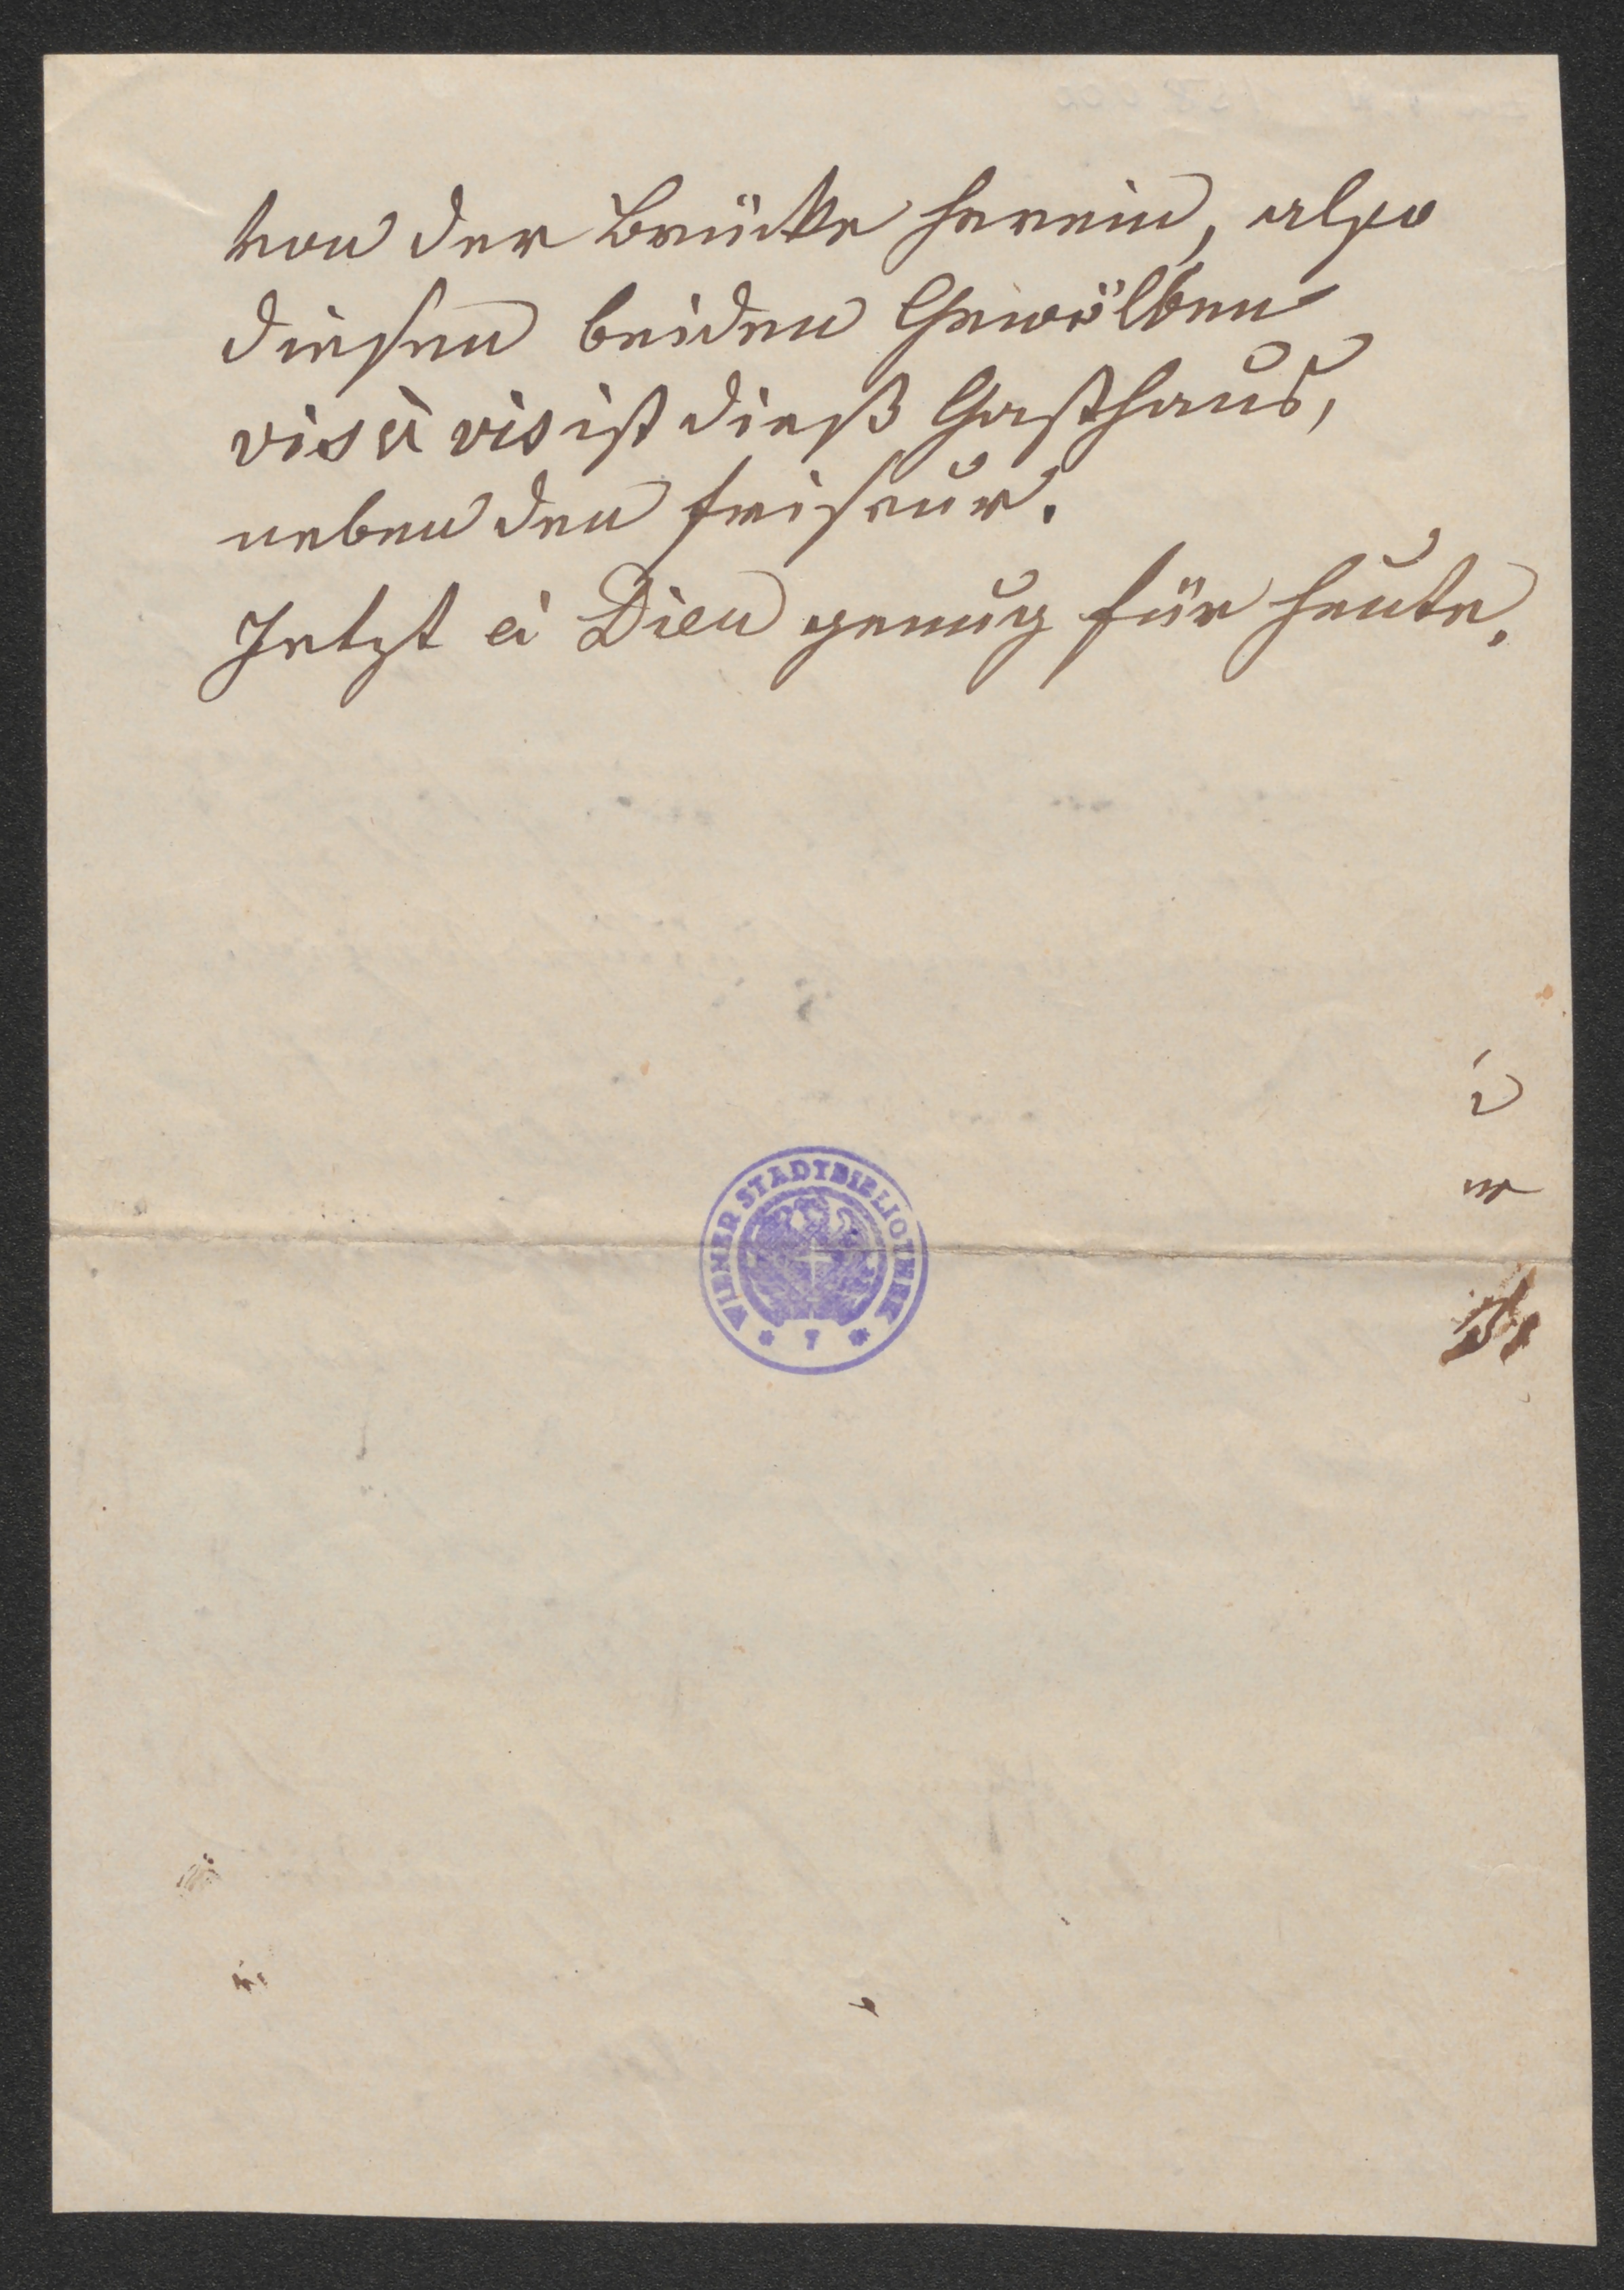 von der Brücke herein, also
diesen beiden Gewölben
vis à vis ist dieß Gasthaus,
neben den Friseur.
Jetzt à Dieu genug für heute.
WIENER STADTBIBLIOTHEK